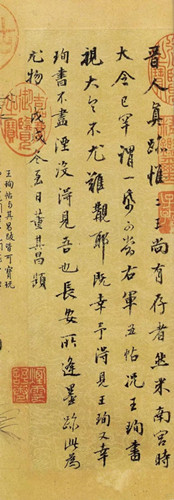 晉人真跡惟二王尚有存者然米南宮時
大令已罕謂一紙可當右軍五帖況王珣書
視大令不尤難覯耶既幸予得見王珣又幸
珣書不盡湮沒得見吾也長安所逢墨跡此為
尤物戊戌冬至日董其昌題
王珣帖与其昌跋皆可寶玩